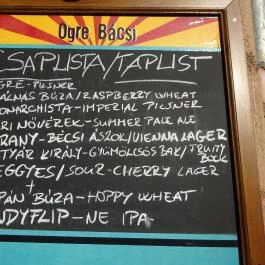 Ogre Bácsi
CSAPLISTA/TAPLIST
OGRE - PILSNER
MÁLNÁS BÚZA/RASPBERRY WHEAT
MONARCHISTA - IMPERIAL PILSNER
NŐVÉREK - SUMMER PALE ALE
ARANY - BÉCSI ÁSZOK/VIENNA LAGER
KIRÁLY - GYÜMÖLCSÖS BAK/FRUITY BOCK
MEGGYES/SOUR - CHERRY LAGER
+
JAPÁN BÚZA - HOPPY WHEAT
NE IPA